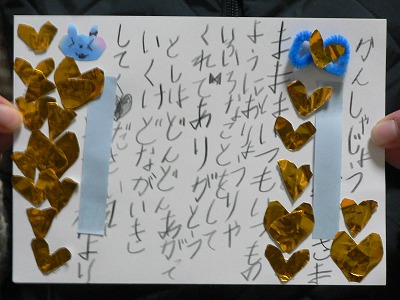 かんしゃじょう
さま
ままいつもいつも
ようにおりょうりや
いろいろなことをして
くれてありがとう
としはどんどんあがって
いくけどながいき
して ださいね
より